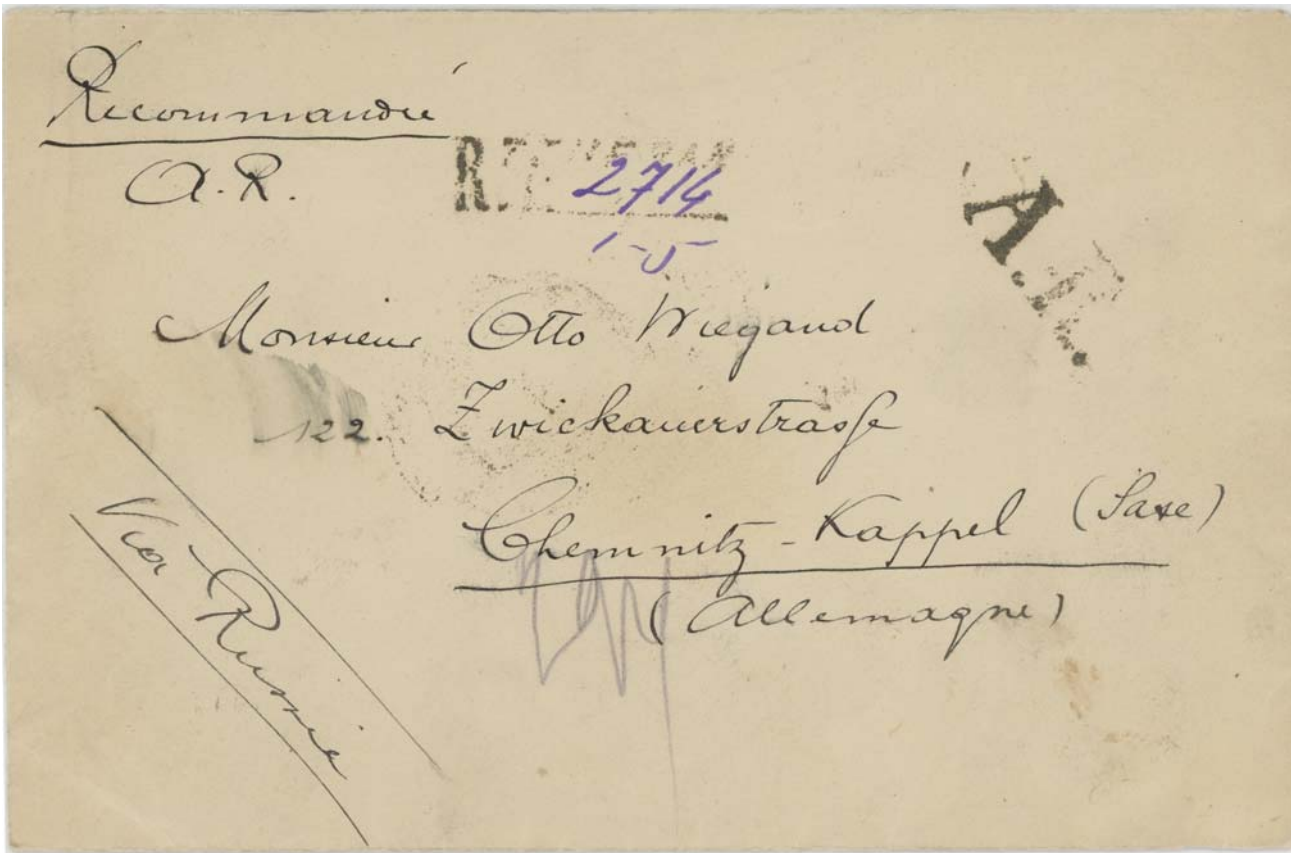 Recommandée
A.R.
R. TÉHÉRAN
2714
1-5
A.R.
Monsieur Otto Wiegand
122. Zwickauerstrasse
Chemnitz-Kappel (Saxe)
(Allemagne)
Via Russie